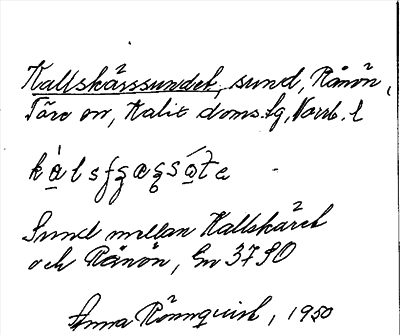 Kallskärssundet, sund, Rånön,
Töre sn, Kalix doms.lg, Norrb. l
Sund mellan Kallskäret
och Rånön, En 37 SO
Anna Rönnquist, 1950